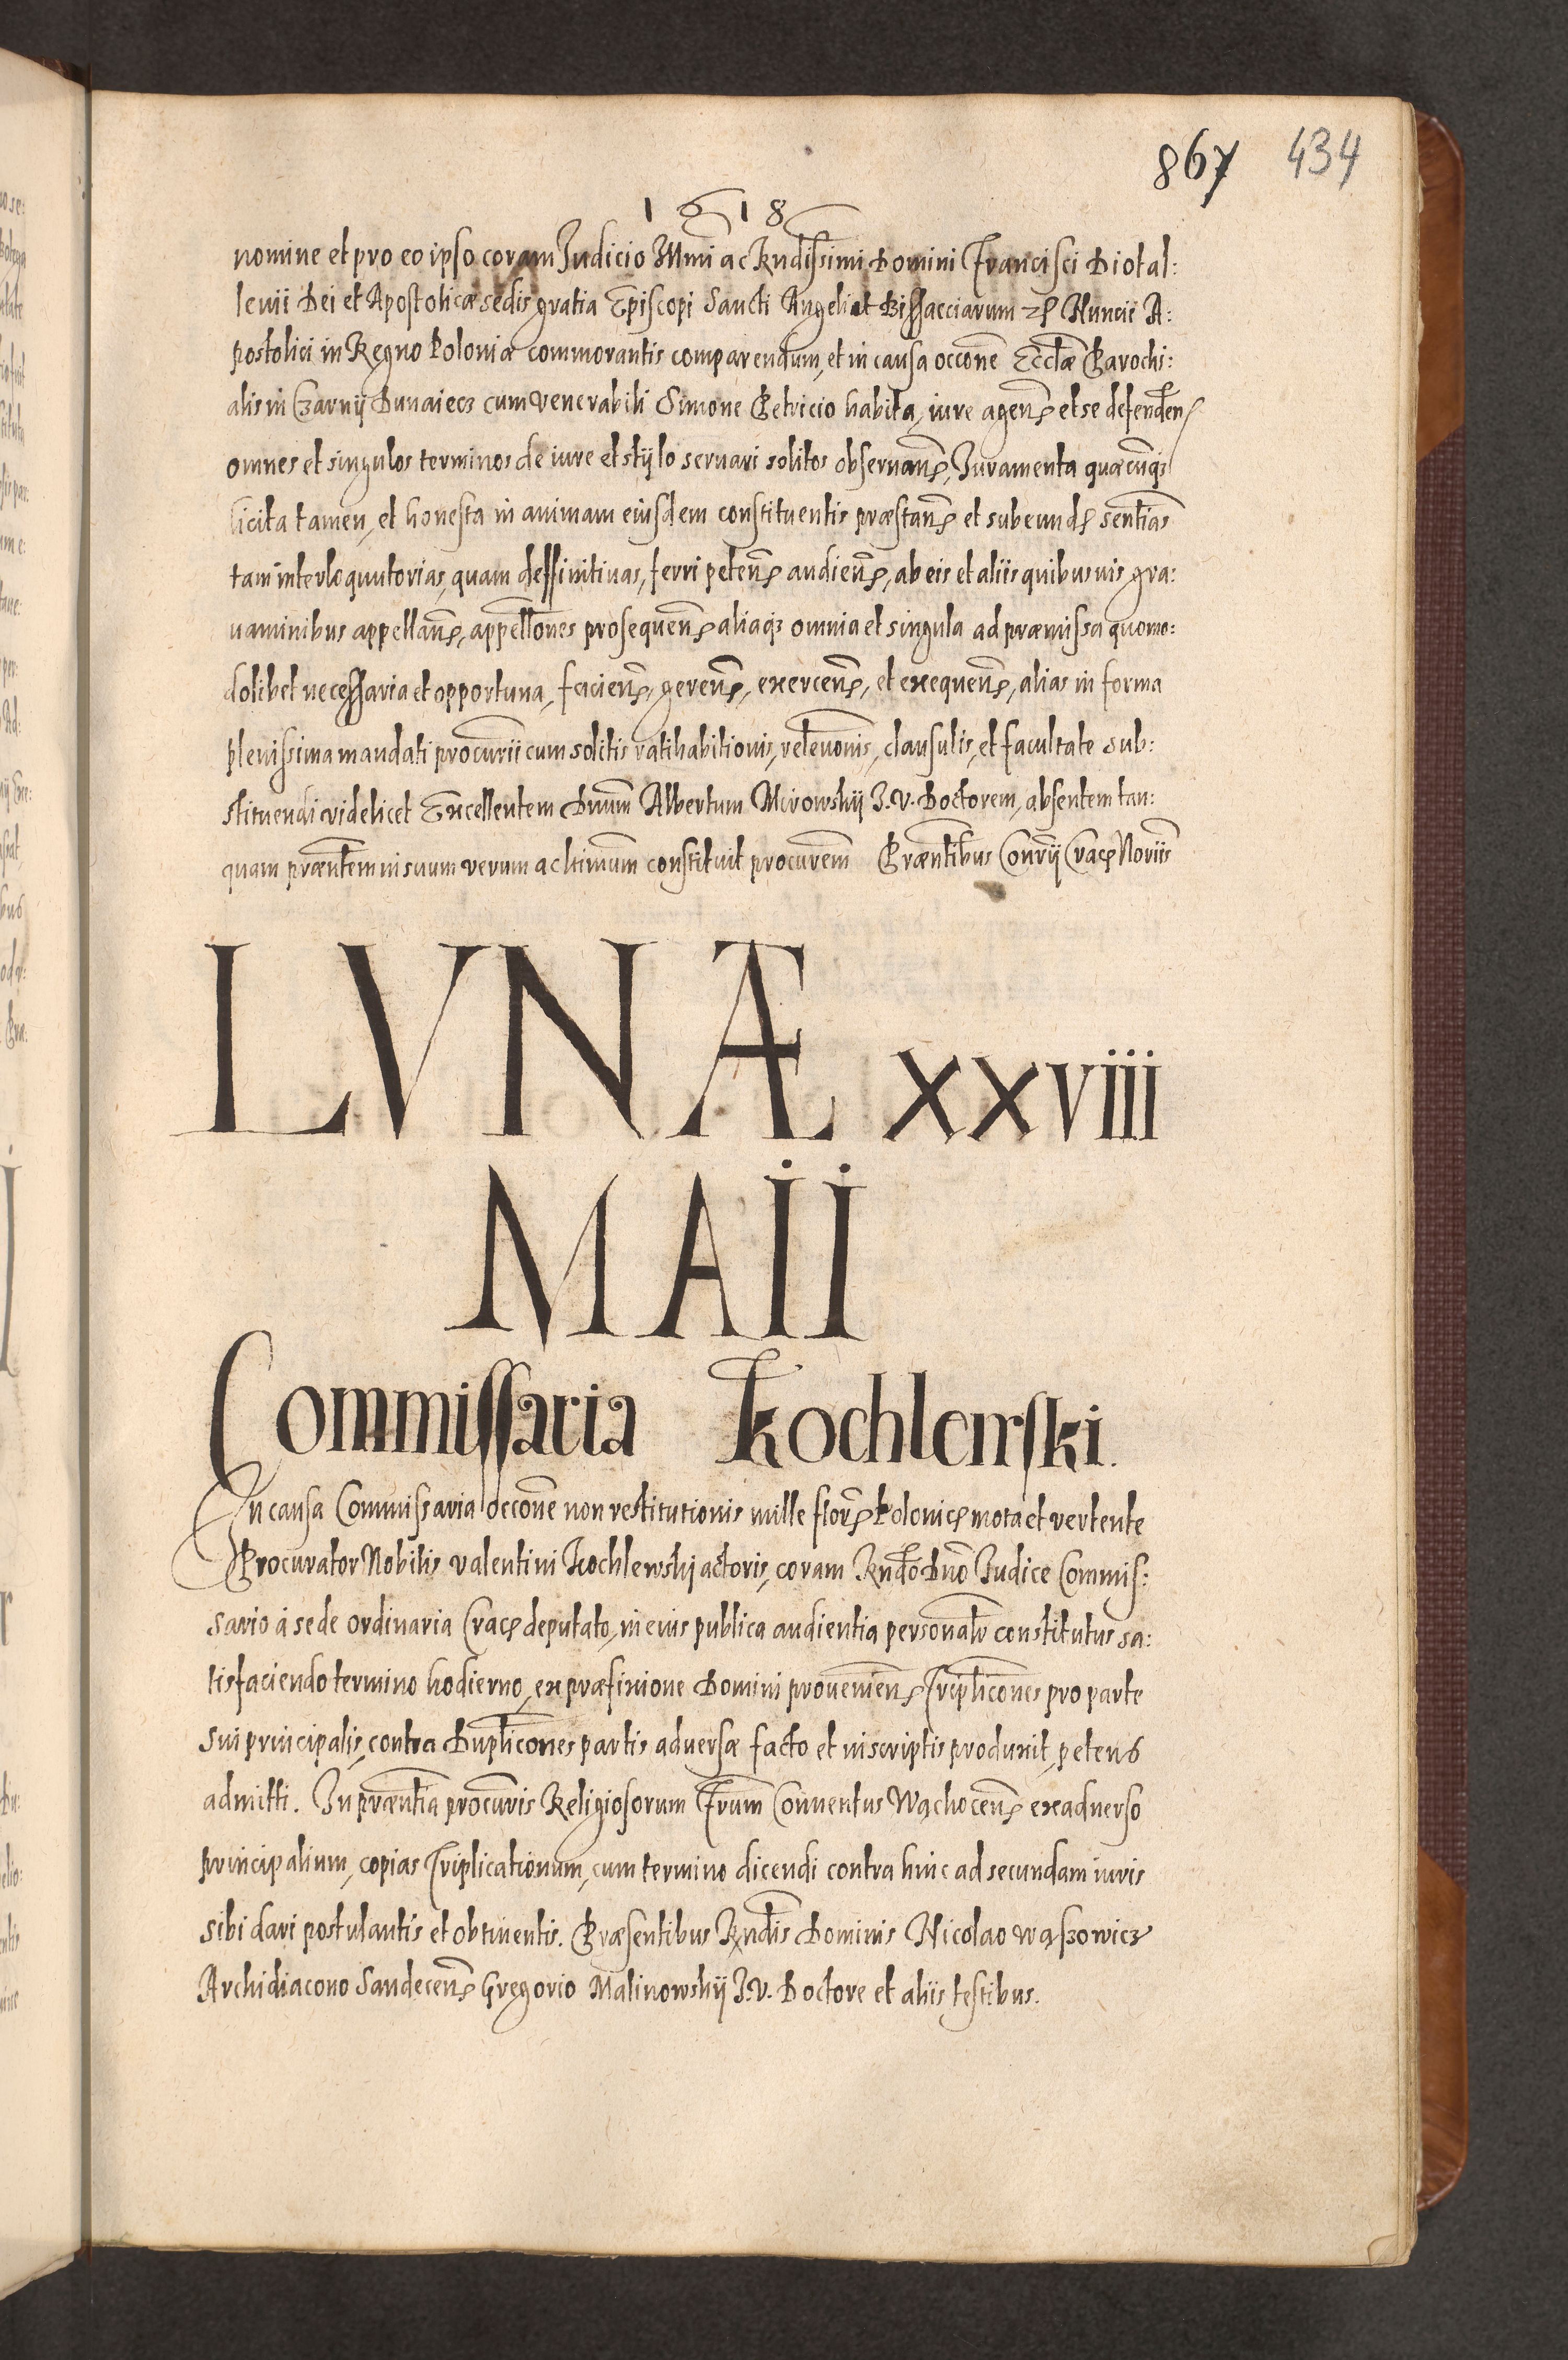 867 434
1618
nomine et pro eo ipso coram Judicio Illmi ac Rndissimi Domini Francisci Diotal:
leuii Dei et Apostolicæ sedis gratia Episcopi Sancti Angeli et Bissacciarum Nuncii A:
postolici in Regno Poloniæ commorantis comparendum, et in causa occone Ecclæ Parochi:
alis in Czarnÿ Dunaiecz cum venerabili Simone Petricio habita, iure agen et se defenden
omnes et singulos terminos de iure et stÿlo seruari solitos obseruan, Juramenta quæcunq
licita tamen, et honesta in animam eiusdem constituentis præstan et subeund sentias
tam interloquutorias, quam deffinitiuas, ferri peten audien, ab eis et aliis quibusuis gra:
uaminibus appellan, appellones prosequen aliaq omnia et singula ad præmissa quomo:
dolibet necessaria et opportuna, facien, geren, exercen, et exequen, alias in forma
plenissima mandati procurii cum solitis ratihabitionis, releuonis, clausulis, et facultate sub:
stituendi videlicet Excellentem Dnum Albertum Mirowskÿ J.V. Doctorem, absentem tan:
quam præntem in suum verum ac ltimum constituit procurem Præntibus Conrÿ Crac Noriis
LVNÆ XXViii
MAii
Commissaria Kochlewski.
In causa Commissaria occone non restitutionis mille flor Polonic mota et vertente
Procurator Nobilis Valentini Kochlewskj actoris, coram Rndo Dno Judice Commis:
sario à sede ordinaria Crac deputato, in eius publica audientia personalr constitutus sa:
tisfaciendo termino hodierno, ex præfixione Domini prouenien Triplicones pro parte
sui principalis, contra Duplicones partis aduersæ facto et in scriptis produxit, petens
admitti. In præntia procuris Religiosorum Frum Conuentus Wąchocen ex aduerso
principalium, copias Triplicationum, cum termino dicendi contra hinc ad secundam iuris
sibi dari postulantis et obtinentis. Præsentibus Rndis Dominis Nicolao Wąszowicz
Archidiacono Sandecen Gregorio Malinowskÿ J.V. Doctore et aliis testibus.